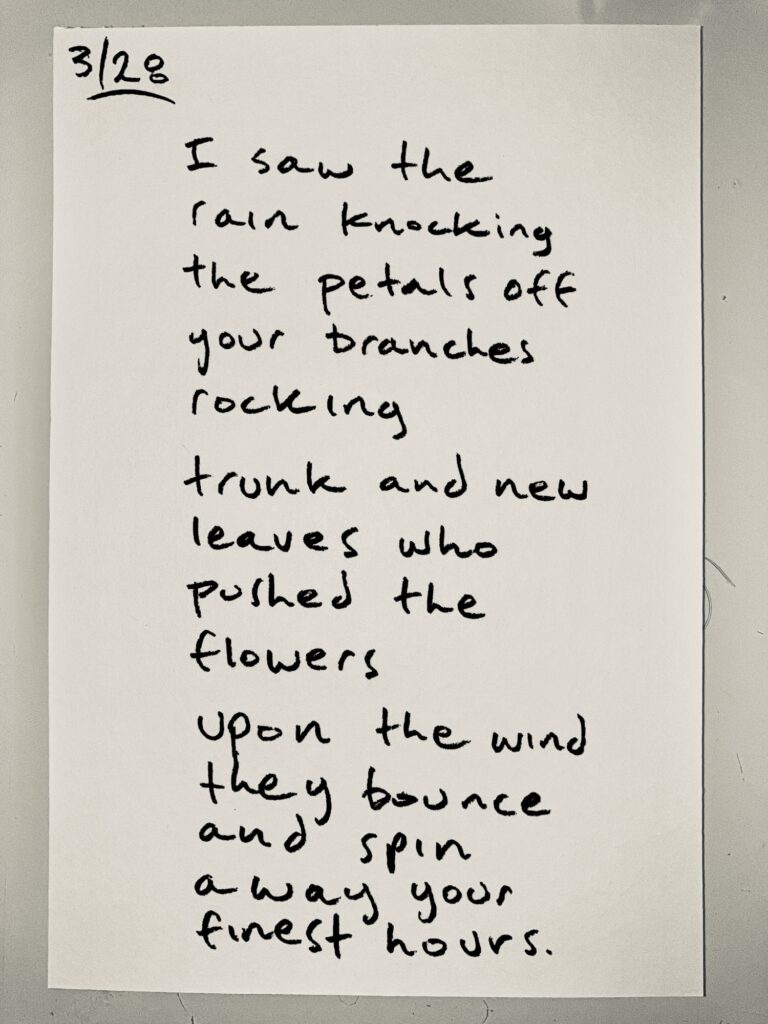 3/28
I saw the
rain knocking
the petals off
your branches
rocking
trunk and new
leaves who
pushed the
flowers
upon the wind
they bounce
and spin
away your
finest hours.